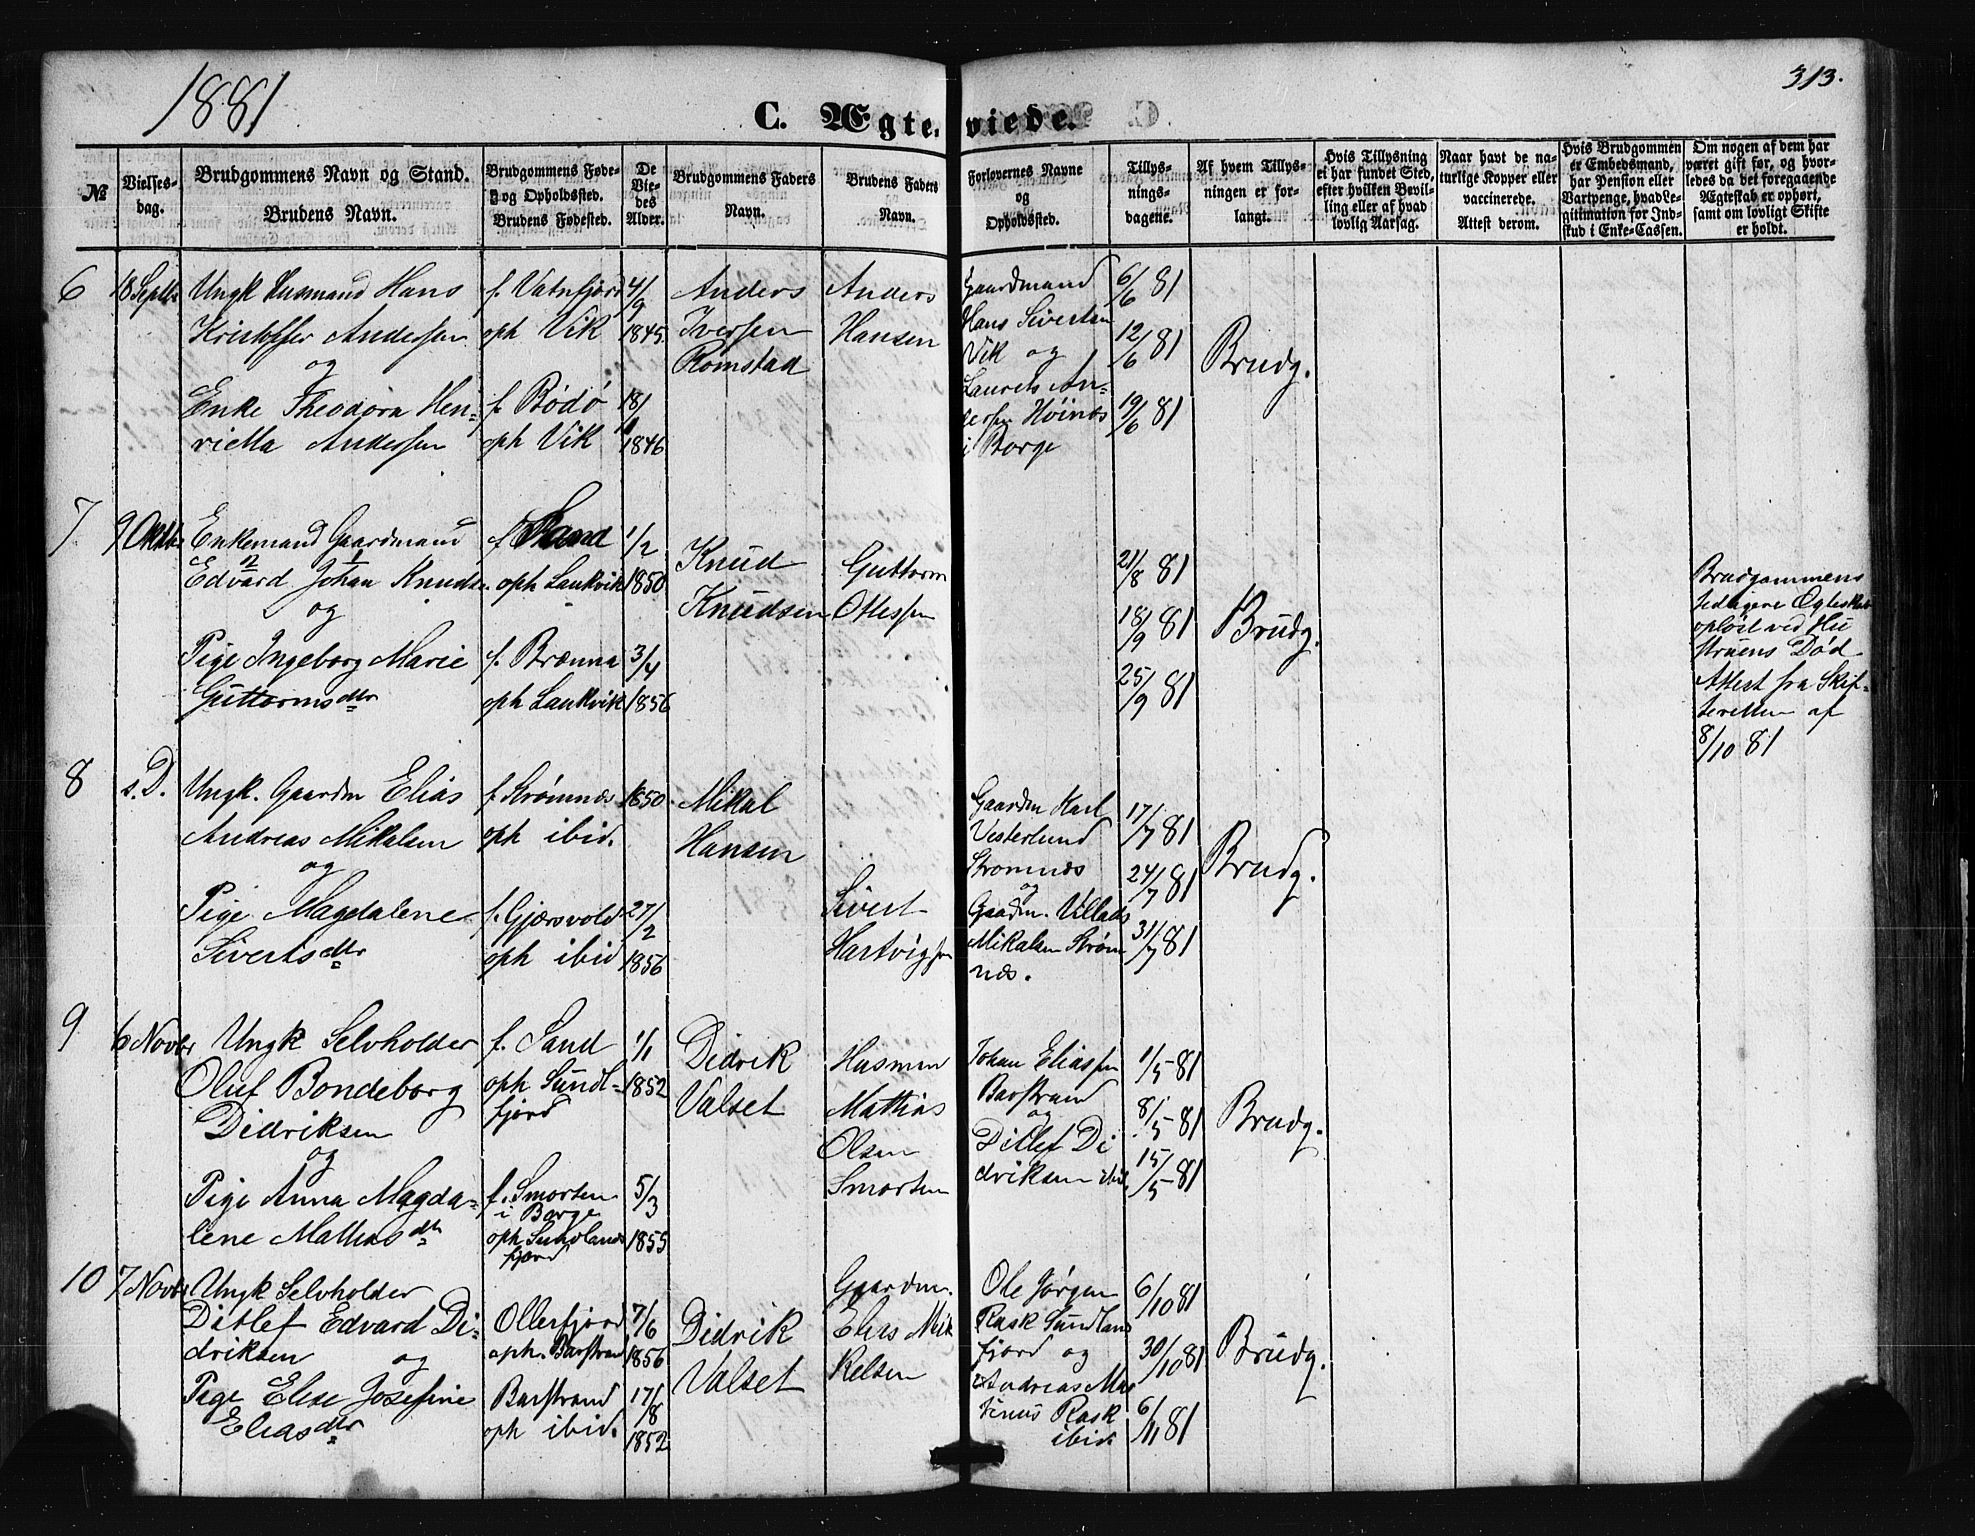 1881
313.
C. Ægteviede.
№
Vielses-
dag.
Brudgommens Navn og Stand.
Brudens Navn.
Brudgommens Føde-
og Opholdssted.
Brudens Fødested.
De
Vie-
des
Alder.
Brudgommens Faders
Navn.
Brudens Faders
Navn.
Forlovernes Navne
og
Opholdssted.
Tillys-
nings-
dagene.
Af hvem Tillys-
ningen er for-
langt.
Hvis Tillysning
ei har fundet Sted,
efter hvilken Bevil-
ling eller af hvad
lovlig Aarsag.
Naar havt de na-
turlige Kopper eller
vaccinerede.
Attest derom.
Hvis Brudgommen
er Embedsmand,
har Pension eller
Vartpenge, hvad Le-
gitimation for Ind-
skud i Enke-Cassen.
Om nogen af dem har
været gift før, og hvor-
ledes da det foregaaende
Ægteskab er ophørt,
samt om lovligt Skifte
er holdt.
6
18 Septbr
Ungk Husmand Hans
Kristoffer Anderssen
og
Enke Theodora Hen-
rietta Anderssen
f. Vatnfjord
oph Vik
f. Bodø
oph Vik
4/9
1845.
18/
1846
Anders
Iversen
Romstad
Anders
Hansen
Gaardmand
Hans Sivertsen
Vik og
Laurets An-
derssen Høinæs
i Borge
6/6 81
12/6 81
19/6 81
Brudg.
7
9 Oktbr
Enkemand Gaardmand
2 1
Edvard Johan Knudsen
og
Pige Ingeborg Marie
Guttormsdtr
f. Sand
oph Laukvik
f. Brænna
oph Laukvik
1/2
1850
3/4
1856
Knud
Knudsen
Guttorm
Ottessen
21/8 81
18/9 81
25/9 81
Brudg.
Brudgommens
tidligere Egteskab
opløst ved Hu
struens Død
Attest fra Skif-
teretten af
8/10 81
8
s. D.
Ungk. Gaardm Elias
Andreas Mikalsen
og
Pige Magdalene
Sivertsdtr
f. Strømnæs
oph ibid.
f. Gjærsvold
oph ibid
1850.
27/2
1856
Mikal
Hansen
Sivert
Hartvigsen
Gaardm Karl
Vesterlund
Strømnæs
og
Gaardm. Villads
Mikalsen Strøm
næs.
17/7 81
24/7 81
31/7 81
Brudg.
9
6 Novbr
Ungk Selvholder
Oluf Bondeborg
Didriksen
og
Pige Anna Magda-
lene Mathiasdtr
f. Sand
oph Sundl-
fjord
f. Smorten
i Borge
oph Sundlands
fjord
1/1
1852
5/3
1855
Didrik
Valset
Husmm
Mathias
Olsen
Smorten
Johan Eliassen
Barstrand
og
Ditlef Di
driksen ibid.
1/5 81
8/5 81
15/5 81
Brudg.
10
7 Novbr
Ungk Selvholder
Ditlef Edvard Di-
driksen og
Pige Elise Josefine
Eliasdtr
Ollerfjord
oph. Barstrand
Barstrand
oph ibid.
7/6
1856
17/8
1852
Didrik
Valset
Gaardm.
Elias Mik
kelsen
Ole Jørgen
Rask Sundlands
fjord og
Andreas Mar
tinus Rask
ibid
6/10 81
30/10 81
6/11 81
Brudg.